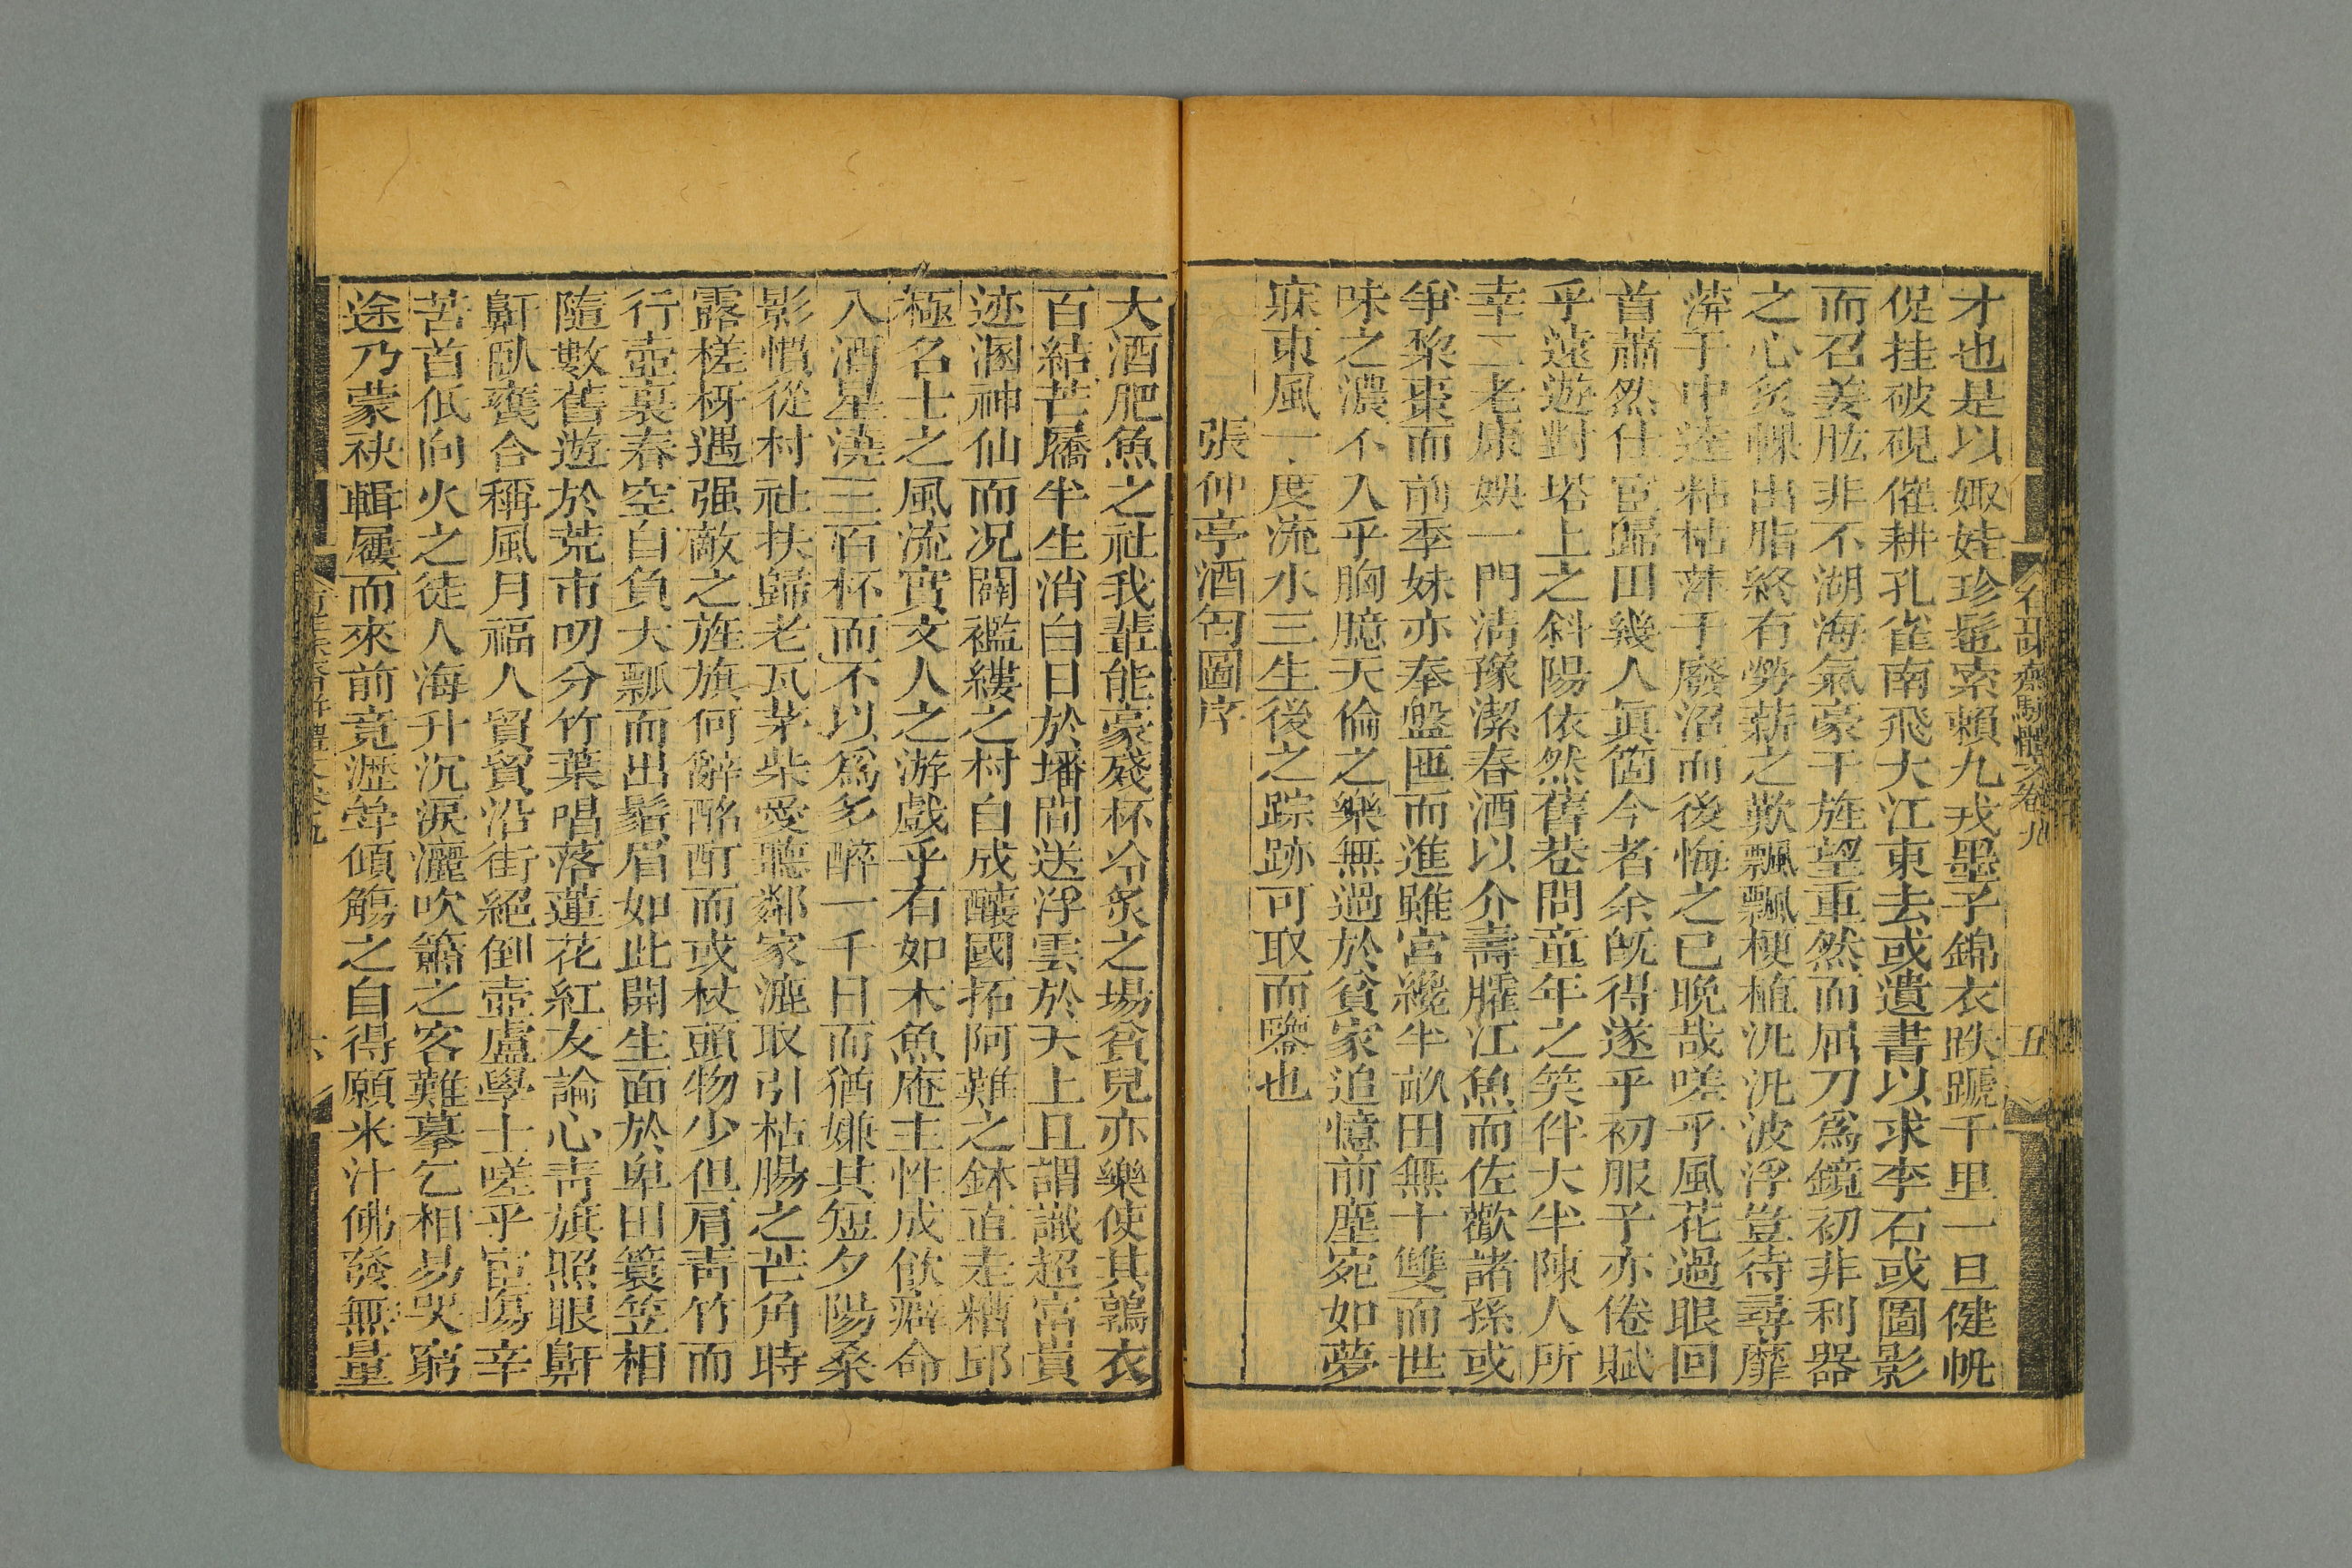 才也是以娵娃珍髢索賴九戎墨子錦衣跌蹏千里一旦健帆
促挂破硯催耕孔雀南飛大江東去或遺書以求李石或圖影
而召姜肱非不湖海氣豪干旌望重然而屈刀爲鏡初非利器
之心炙輠出脂終有勞薪之歎飄飄梗植汎汎波浮豈待尋靡
蓱于中逵粘枯蔴于廢沼而後悔之已晚哉嗟乎風花過眼回
首蕭然仕宦歸田幾人眞箇今者余旣得遂乎初服予亦倦賦
乎遠遊對塔上之斜陽依然舊巷問童年之笑伴大半陳人所
幸二老康娛一門淸豫潔春酒以介壽臛江魚而佐歡諸孫或
爭棃棗而前季妹亦奉盤匜而進雖宮纔半畝田無十雙而世
味之濃不入乎胸臆天倫之樂無過於貧家追憶前塵宛如夢
寐東風一度流水三生後之踪跡可取而鑒也
張仲亭酒匄圖序
大酒肥魚之社我輩能豪殘杯冷炙之場貧兒亦樂使其鶉衣
百結芒屩半生消白日於墦間送浮雲於天上且謂識超富貴
迹溷神仙而况闢襤縷之村自成釀國拓阿難之鉢直走糟邱
極名士之風流實文人之游戲乎有如木魚庵主性成飮癖命
入酒星澆三百杯而不以爲多醉一千日而猶嫌其短夕陽桑
影慣從村社扶歸老瓦茅柴愛聽鄰家漉取引枯腸之芒角時
露槎枒遇强敵之旌旗何辭酩酊而或杖頭物少但肩靑竹而
行壺裏春空自負大瓢而出鬚眉如此開生面於卑田簑笠相
隨數舊遊於荒市叨分竹葉唱落蓮花紅友論心靑旗照眼鼾
鼾臥甕合稱風月福人貿貿沿街絕倒壺盧學士嗟乎宦場辛
苦首低向火之徒人海升沉淚灑吹簫之客難摹乞相易哭窮
途乃蒙袂輯屨而來前竟瀝斝傾觴之自得願米汁佛發無量
齋駢體文卷九
五
六